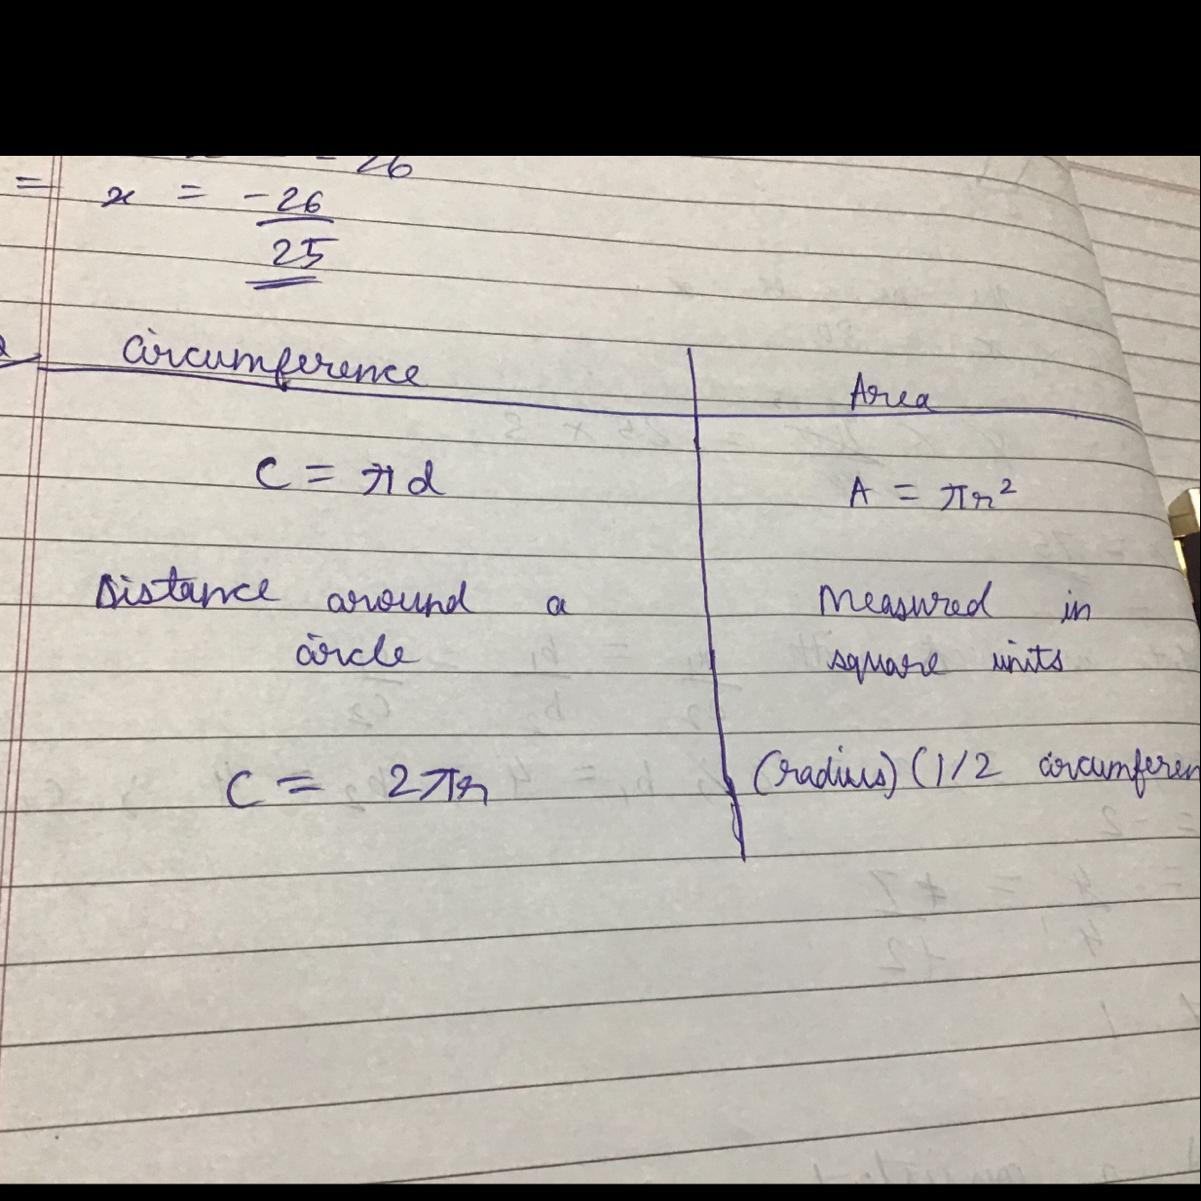 - 26
= x = -26
25
Circumference Area
C = πd A = πr²
Distance around a Measured in
circle square units
C = 2πr (radius) (1/2 circumferen